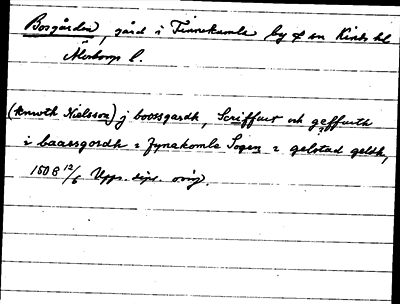 Bosgården, gård i Finnekumla by o sn Kinds hd
Älvsborgs l.
(knwth Nielsson) j boossgardh, Scriffuet och geffuith
i baassgordh i fynakomla Sogen i gelstad geldh,
1506 12/6 Upps. dipl. orig.